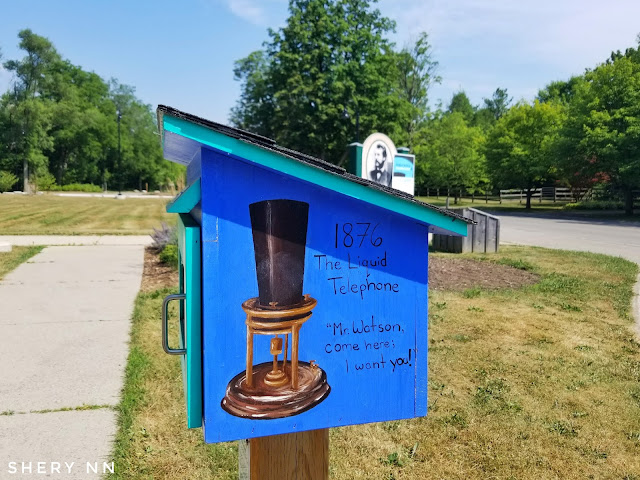 1876
The Liquid
Telephone
"Mr. Watson,
come here;
I want you!"
SHERY NN